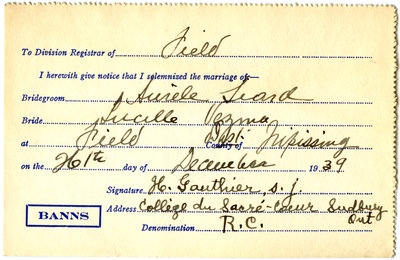 To Division Registrar of Field
I herewith give notice that I solemnized the marriage of
Bridegroom Aurèle Giard
Bride Lucille
at Field Dist. County of Nipissing
on the 26th day of December 1939
Signature H. Gauthier, s.j.
BANNS
Address Collège du Sacré-Coeur Sudbury Ont
Denomination R.C.